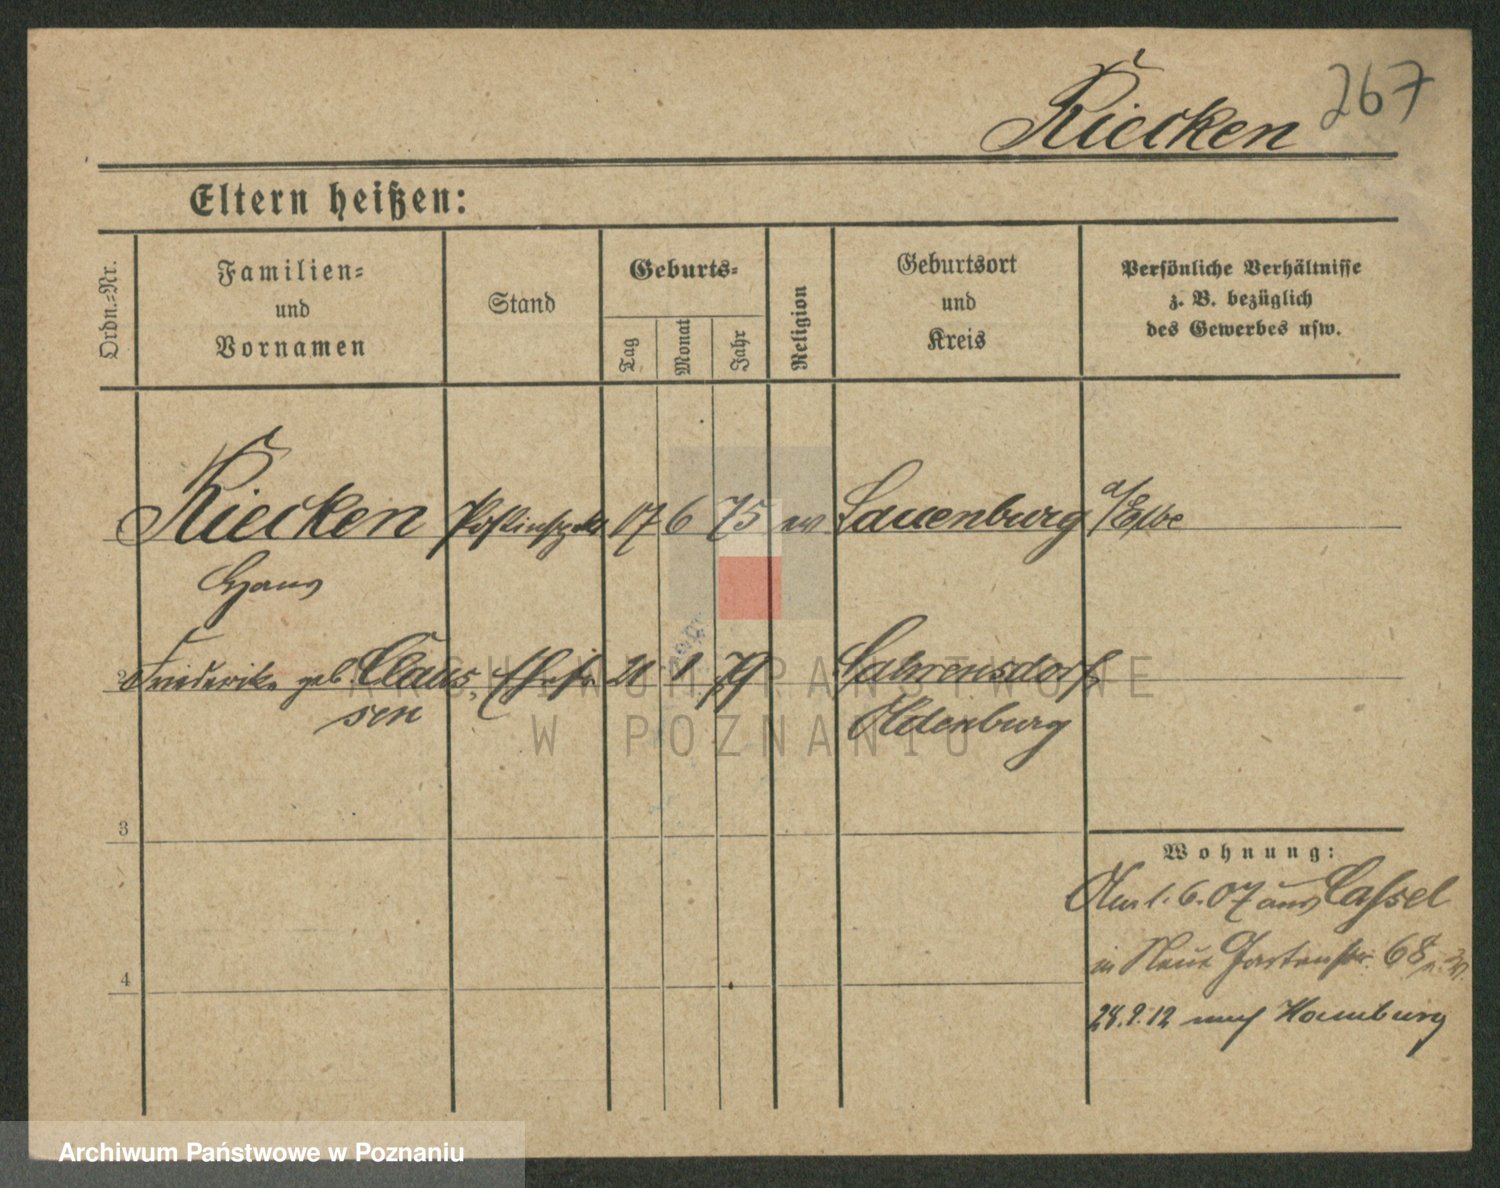 267
Riecken
Eltern heißen:
Ordn.-Nr.
Familien-
und
Vornamen
Stand
Geburts-
Tag
Monat
Jahr
Religion
Geburtsort
und
Kreis
Persönliche Verhältnisse
z. B. bezüglich
des Gewerbes usw.
Riecken Postinspekt. 17 6 75 ev. Lauenburg a/Elbe
Hans
2 Friederike geb. Claus- Ehefr. 21 1 79 Sahrensdorf
sen Oldenburg
3
Wohnung:
Am 1. 6. 07 aus Cassel
in Neue Gartenstr. 68
4
28.9.12 nach Hamburg
ARCHIWUM PAŃSTWOWE
W POZNANIU
Archiwum Państwowe w Poznaniu